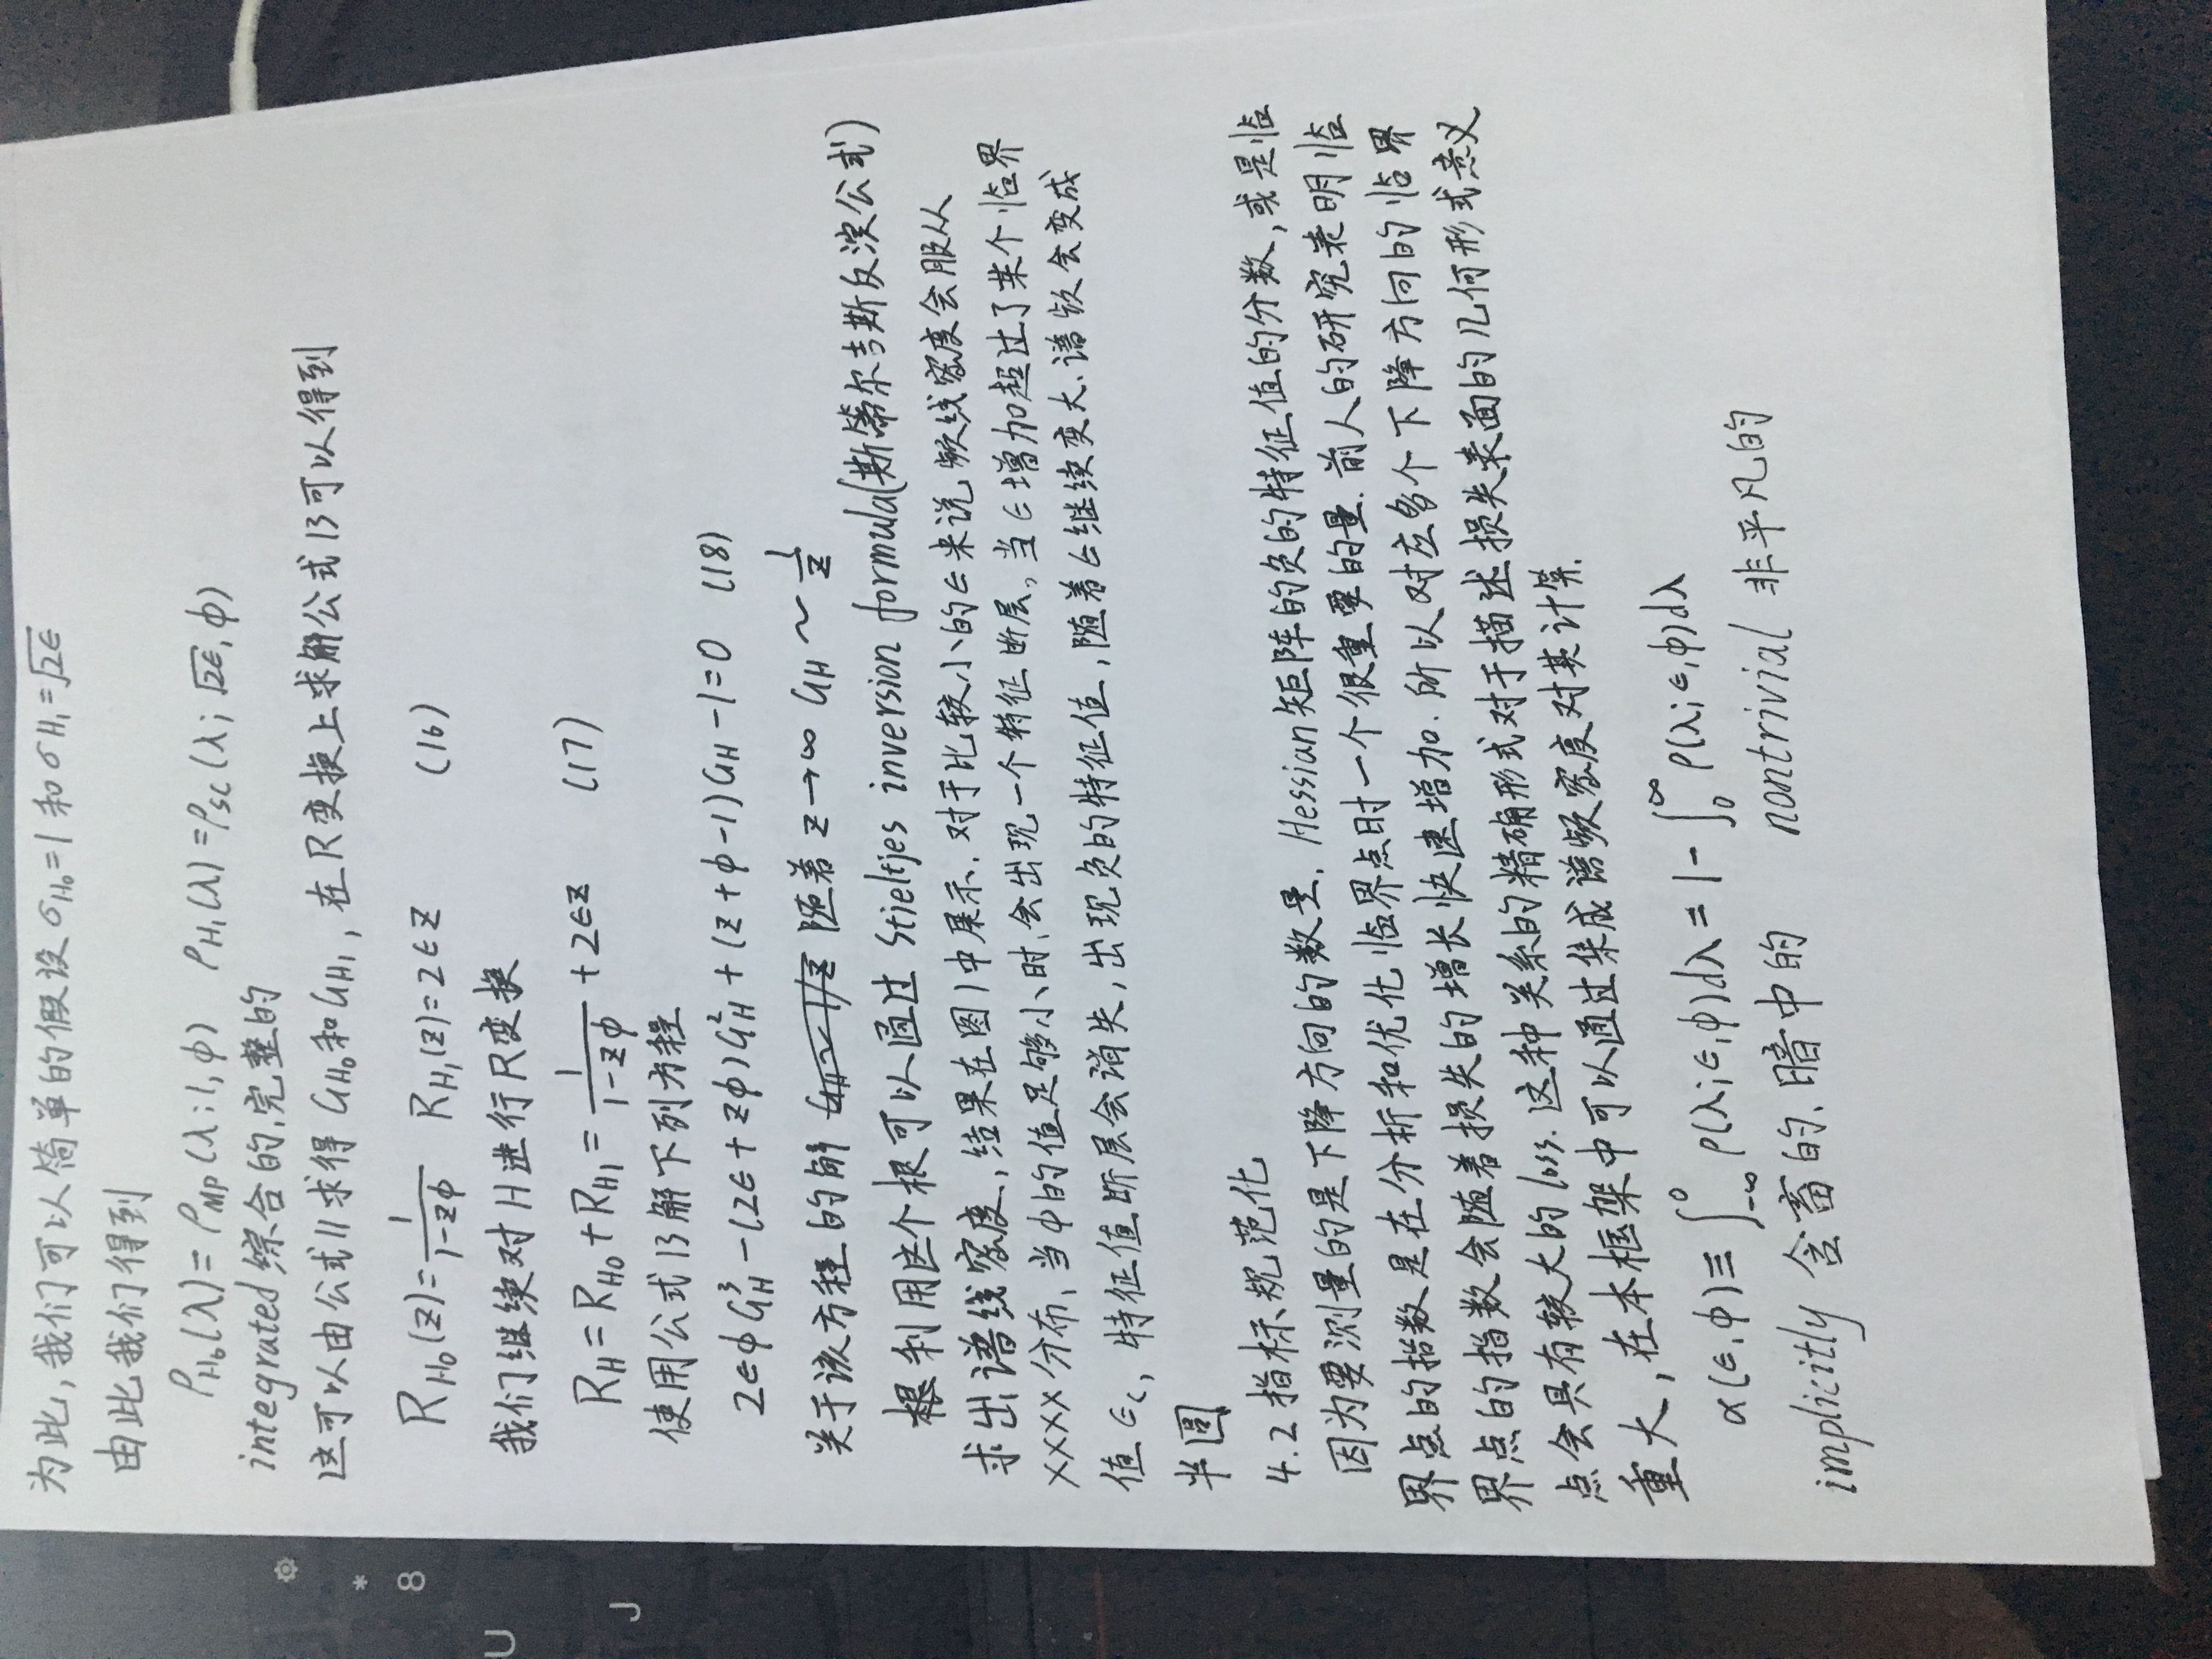 为此,我们可以简单的假设 σH₀=1 和 σH₁=√2ϵ
由此我们得到
ρH₀(λ)=ρMP(λ;1,ϕ) ρH₁(λ)=ρSC(λ;√2ϵ,ϕ)
integrated 综合的,完整的
这可以由公式11求得 GH₀和GH₁,在R变换上求解公式13可以得到
RH₀(z)=1/(1-zϕ) RH₁(z)=2ϵz (16)
我们继续对H进行R变换
RH=RH₀+RH₁=1/(1-zϕ)+2ϵz (17)
使用公式13解下列方程
2ϵϕG³H-(2ϵ+zϕ)G²H+(z+ϕ-1)GH-1=0 (18)
关于该方程的解 随着 z→∞ GH~1/z
根利用这个根可以通过 Stieltjes inversion formula(斯蒂尔吉斯反演公式)
求出谱线密度,结果在图1中展示.对于比较小的ϵ来说 频线密度会服从
XXXX分布,当ϕ的值足够小时,会出现一个特征断层。当ϵ增加超过了某个临界
值ϵc,特征值断层会消失,出现负的特征值,随着ϵ继续变大.谱频会变成
半圆
4.2 指标规范化
因为要测量的是下降方向的数量.Hessian矩阵的负的特征值的分数,或是临
界点的指数是在分析和优化临界点时一个很重要的量.前人的研究表明临
界点的指数会随着损失的增长快速增加.所以对应多个下降方向的临界
点会具有较大的loss.这种关系的精确形式对于描述损失表面的几何形式意义
重大,在本框架中可以通过集成谱频密度对其计算.
α(ϵ,ϕ)≡∫⁰₋∞ρ(λ;ϵ,ϕ)dλ=1-∫₀^∞ρ(λ;ϵ,ϕ)dλ
implicitly 含畜的.暗中的 nontrivial 非平凡的
8
*
U
J